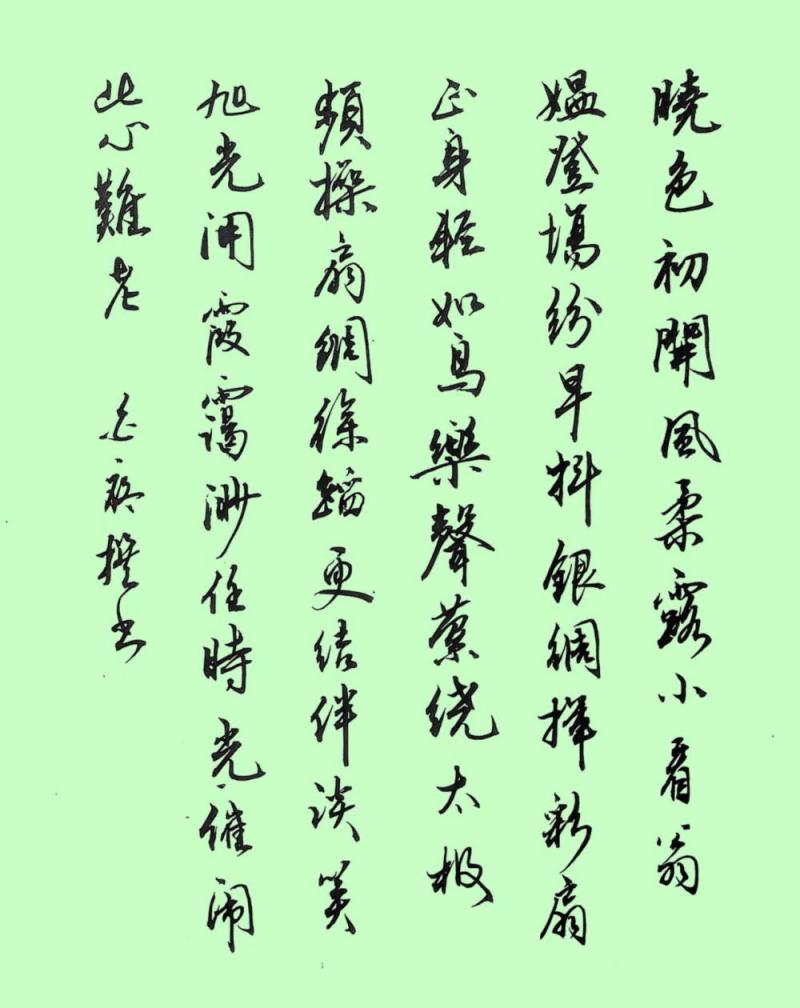 曉色初開風柔露小看翁
媼登場紛早抖銀綢揮彩扇
正身輕如鳥樂聲萦绕太极
頻操扇綢徐蹈更结伴談笑
旭光涌霞靄渺任時光催闹
此心難老 撰书